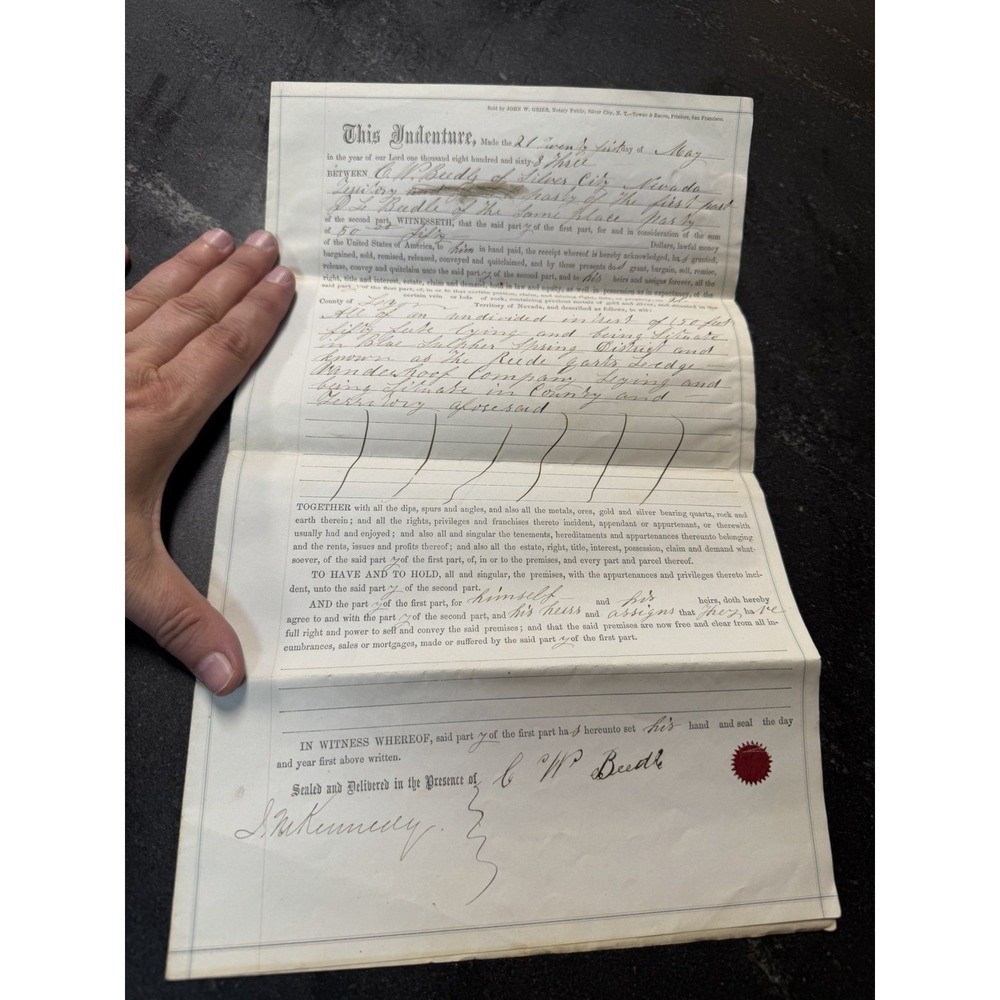 Sold by JOHN W. GRIER, Notary Public, Silver City, N. T.—Towne & Bacon, Printers, San Francisco.
This Indenture, Made the 21 Twenty first day of May
in the year of our Lord one thousand eight hundred and sixty-3 three
BETWEEN C. W. Beedle of Silver City Nevada
Territory party of the first part
Beedle of the Same place party
of the second part, WITNESSETH, that the said party of the first part, for and in consideration of the sum
of 50 00 fifty Dollars, lawful money
of the United States of America, to him in hand paid, the receipt whereof is hereby acknowledged, has granted,
bargained, sold, remised, released, conveyed and quitclaimed, and by these presents does grant, bargain, sell, remise,
release, convey and quitclaim unto the said party of the second part, and to his heirs and assigns forever, all the
right, title and interest, estate, claim and demand, both in law and equity, as well in possession as in expectancy, of the
said party of the first part, of, in or to that certain portion, claim, and mining right, title, or property,
certain vein or lode of rock, containing precious metals of gold and silver, and situated in the
County of Territory of Nevada, and described as follows, to wit:
All of an undivided intrest of 50 feet
fifty fete lying and being Situate
in Blue Sulpher Spring District and
known as The Reede Leadge
Vanderhoof Company Lying and
being Situate in Country and
Territory aforesaid
TOGETHER with all the dips, spurs and angles, and also all the metals, ores, gold and silver bearing quartz, rock and
earth therein; and all the rights, privileges and franchises thereto incident, appendant or appurtenant, or therewith
usually had and enjoyed; and also all and singular the tenements, hereditaments and appurtenances thereunto belonging
and the rents, issues and profits thereof; and also all the estate, right, title, interest, possession, claim and demand what-
soever, of the said party of the first part, of, in or to the premises, and every part and parcel thereof.
TO HAVE AND TO HOLD, all and singular, the premises, with the appurtenances and privileges thereto inci-
dent, unto the said party of the second part.
AND the party of the first part, for himself and his heirs, doth hereby
agree to and with the party of the second part, and his heirs and assigns that they have
full right and power to sell and convey the said premises; and that the said premises are now free and clear from all in-
cumbrances, sales or mortgages, made or suffered by the said party of the first part.
IN WITNESS WHEREOF, said party of the first part has hereunto set his hand and seal the day
and year first above written.
Sealed and Delivered in the Presence of C W Beedle
McKennedy.